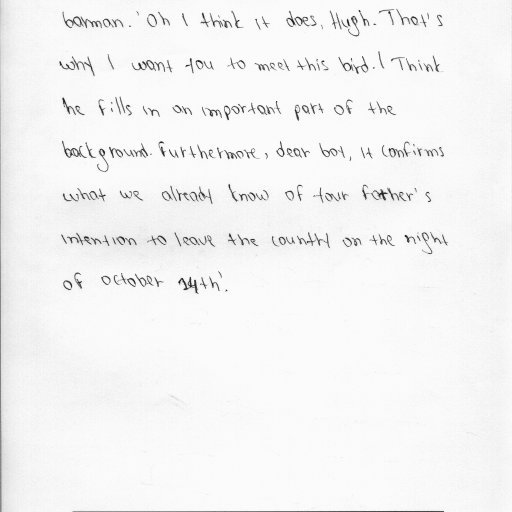 barman. 'Oh I think it does, Hugh. That's
why I want you to meet this bird. I Think
he fills in an important part of the
background. Furthermore, dear boy, it confirms
what we already know of your father's
intention to leave the country on the night
of october 14th'.